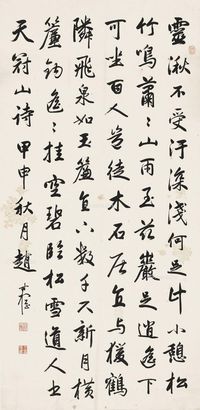 靈湫不受汙深淺何足計小憩松
竹鳴蕭々山雨至茲巖足逍遙下
可坐百人豈徒木石居宜与猨鶴
隣飛泉如玉簾直下數千尺新月橫
簾鉤遙々挂空碧臨松雪道人書
天冠山诗甲申秋月趙